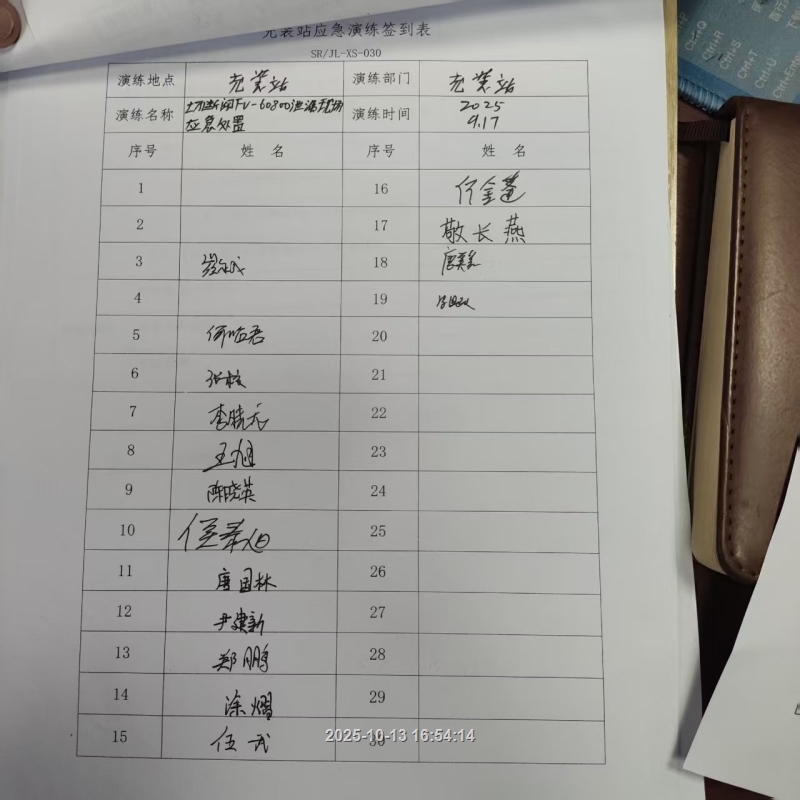 充装站应急演练签到表
SR/JL-XS-030
演练地点 充装站 演练部门 充装站
演练名称 切断阀FV-60800泄漏现场 应急处置 演练时间 2025 9.17
序号 姓 名 序号 姓 名
1 16
2 17 敬长燕
3 18
4 19
5 何临君 20
6 21
7 李晓 22
8 王旭 23
9 陈晓英 24
10 25
11 唐国林 26
12 尹建新 27
13 郑鹏 28
14 涂熠 29
15 伍武 30
2025-10-13 16:54:14
Ctrl+Q
Ctrl+R
Ctrl+S
Ctrl+T
Ctrl+U